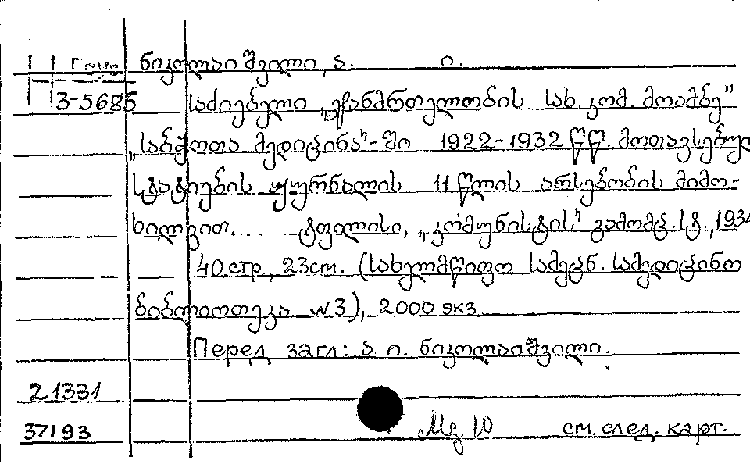 ნიკოლაიშვილი, ა. ი.
3-5685 საძიებელი „ჯანმრთელობის სახ. კომ. მოამბე"
„საბჭოთა მედიცინა"-ში 1922-1932 წწ. მოთავსებულ
სტატიების ჟურნალის 11 წლის არსებობის მიმო-
ხილვით... ტფილისი, „კომუნისტის" გამომც. სტ., 1934
40 стр, 23см. (სახელმწიფო სამეცნ. სამედიცინო
ბიბლიოთეკა №3), 2000 экз
Перед загл: ა. ი. ნიკოლაიშვილი.
21331
37193 см. след. карт.